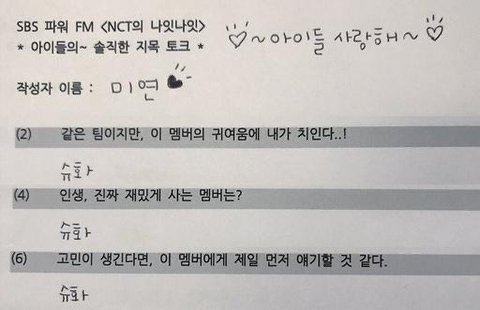 SBS 파워 FM <NCT의 나잇나잇>
* 아이들의~ 솔직한 지목 토크 *
♡~아이들 사랑해~♡
작성자 이름 : 미연♥
(2) 같은 팀이지만, 이 멤버의 귀여움에 내가 치인다..!
슈화
(4) 인생, 진짜 재밌게 사는 멤버는?
슈화
(6) 고민이 생긴다면, 이 멤버에게 제일 먼저 얘기할 것 같다.
슈화